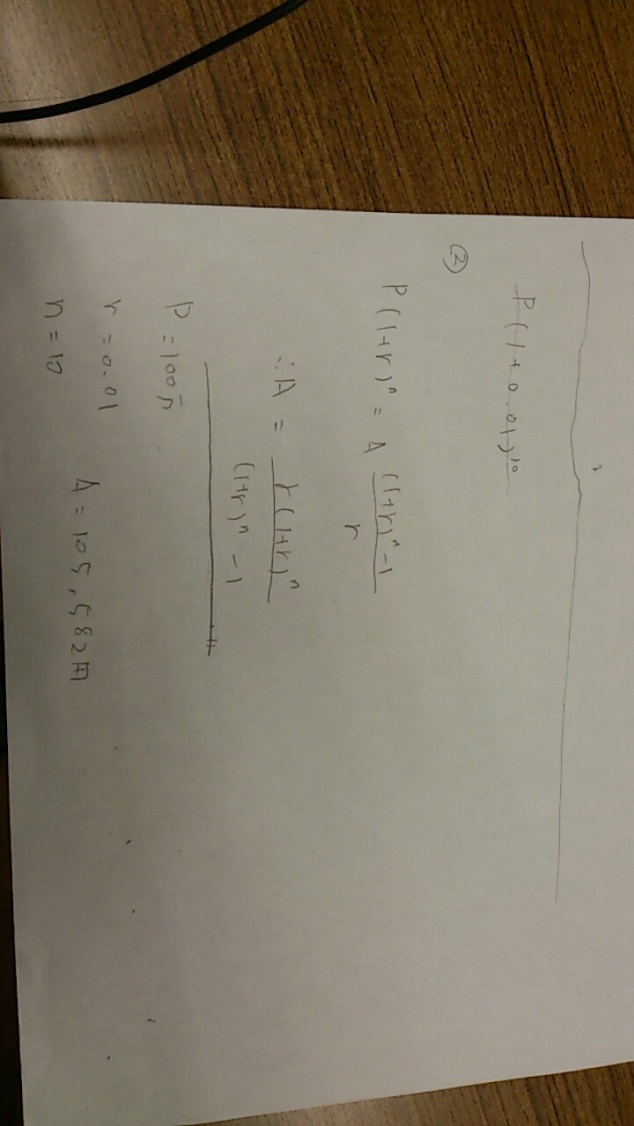 P(1+0.01)^10
②
P(1+r)^n = A ((1+r)^n - 1)/r
∴ A = r(1+r)^n/((1+r)^n - 1)
P = 100万
r = 0.01
n = 10
A = 105,582円